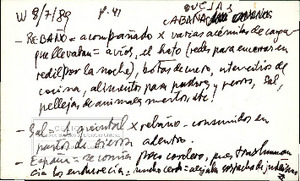 W 8/7/89 P. 41 OVEJAS
CABAÑA
- REBAÑO = acompañado x varias acémilas de carga
que llevaban = avíos, el hato (redes para encerrar en
redil por la noche), botas de cuero, utensilios de
cocina, alimentos para pastores y perros, sal,
pellejas de animales muertos, etc!
- Sal = 1 quintal x rebaño. consumidos en
pastos de tierra adentro.
- España = se comía poco cordero, pues trashuman
cia los endurecía = cerdo = alejaba sospecha de judaísmo